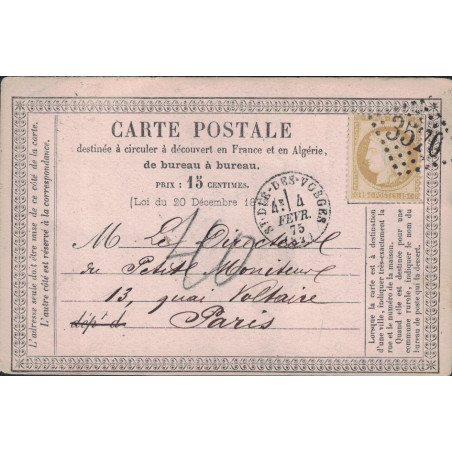 CARTE POSTALE
destinée à circuler à découvert en France et en Algérie,
de bureau à bureau.
PRIX : 15 CENTIMES.
[Loi du 20 Décembre 18
ST-DIÉ-DES-VOSGES
4
FEVR.
75
3520
40
M. Le Directeur
du Petit Moniteur
13, quai Voltaire
Paris
L'adresse seule doit être mise de ce côté de la carte.
L'autre côté est réservé à la correspondance.
Lorsque la carte est à destination
d'une ville, indiquer très-exactement la
rue et le numéro de la maison.
Quand elle est destinée pour une
commune rurale, indiquer le nom du
bureau de poste qui la dessert.